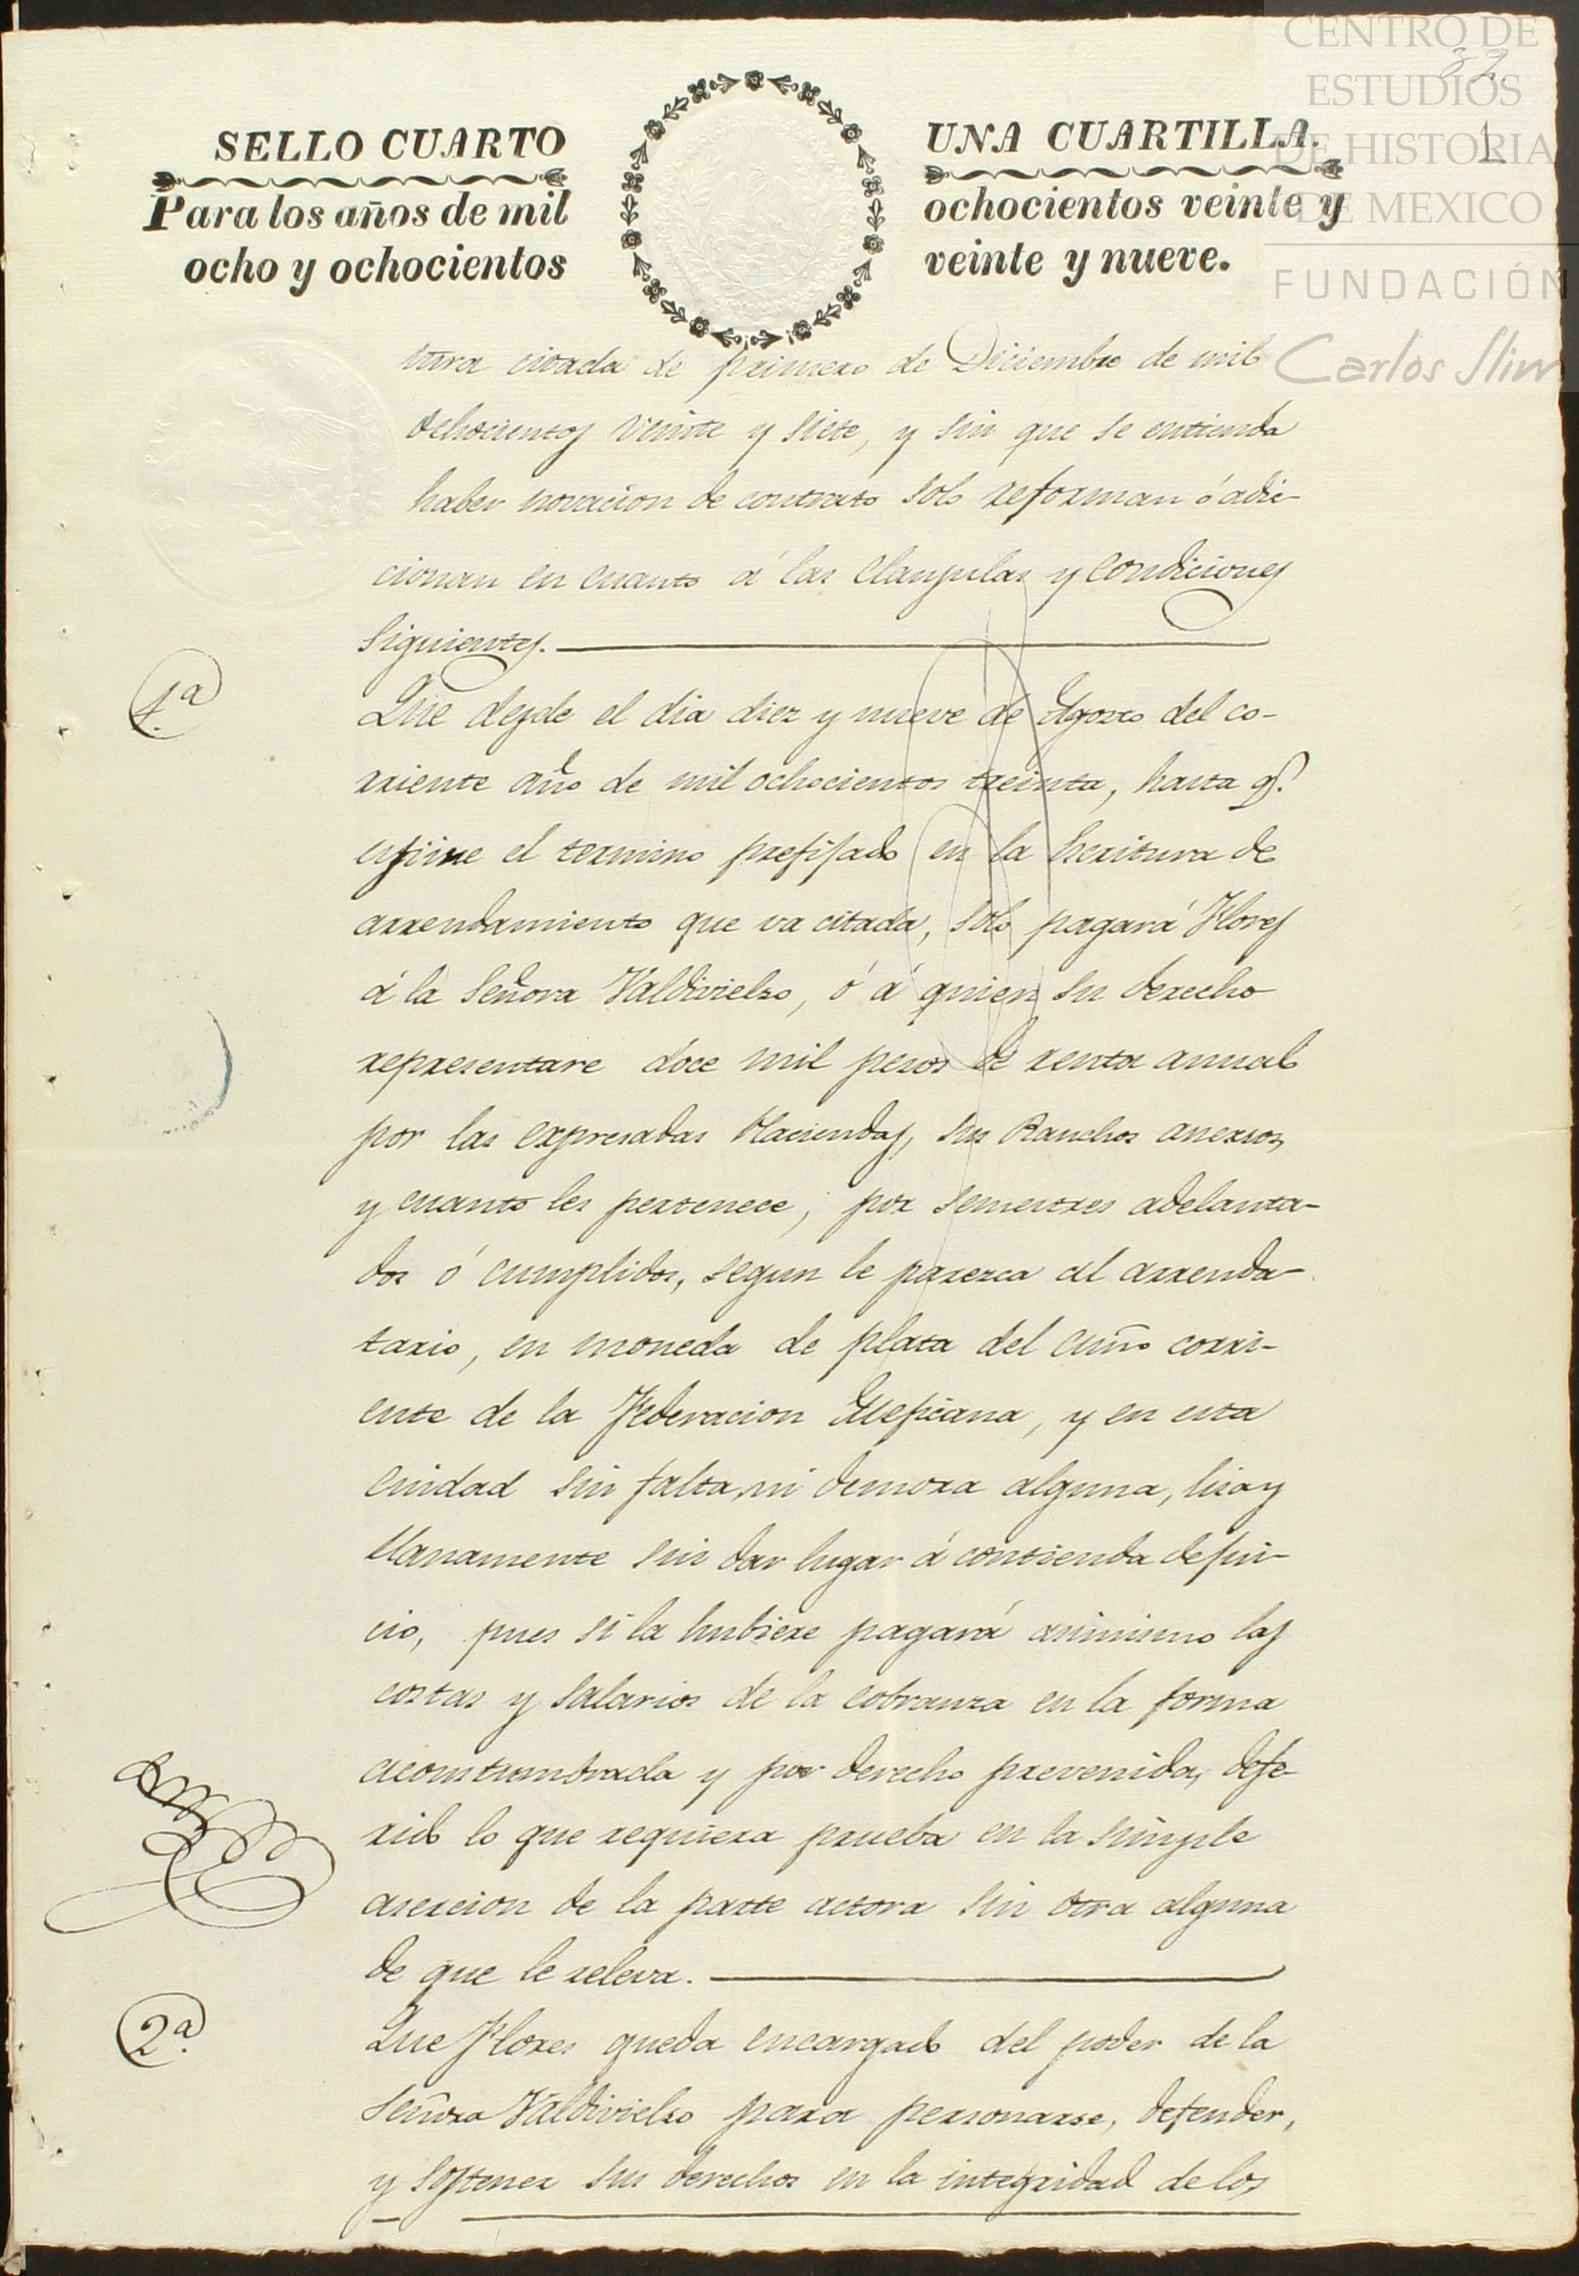 CENTRO DE
ESTUDIOS
DE HISTORIA
DE MEXICO
FUNDACIÓN
Carlos Slim
32
1
SELLO CUARTO
UNA CUARTILLA.
Para los años de mil
ochocientos veinte y
ocho y ochocientos
veinte y nueve.
tura citada de primero de Diciembre de mil
ochocientos veinte y siete, y sin que se entienda
haber novacion de contrato solo reforman ó adi-
cionan en cuanto á las clausulas y condiciones
siguientes.
1.ª
Que desde el dia diez y nueve de Agosto del co-
rriente año de mil ochocientos treinta, hasta q.e
espire el termino prefijado en la Escritura de
arrendamiento que va citada, solo pagará Flores
á la Señora Valdivielso, ó á quien su derecho
representare doce mil pesos de renta anual
por las expresadas Haciendas, sus Ranchos anexos,
y cuanto les pertenece, por semestres adelanta-
dos ó cumplidos, segun le parezca al arrenda-
tario, en moneda de plata del cuño corri-
ente de la Federacion Mejicana, y en esta
Ciudad sin falta, ni demora alguna, lisa y
llanamente sin dar lugar á contienda de jui-
cio, pues si la hubiere pagará asimismo las
costas y salarios de la cobranza en la forma
acostumbrada y por derecho prevenida, defe-
rido lo que requiera prueba en la simple
asercion de la parte actora sin otra alguna
de que le releva.
2.ª
Que Flores queda encargado del poder de la
Señora Valdivielso para personarse, defender,
y sostener sus derechos en la integridad de los